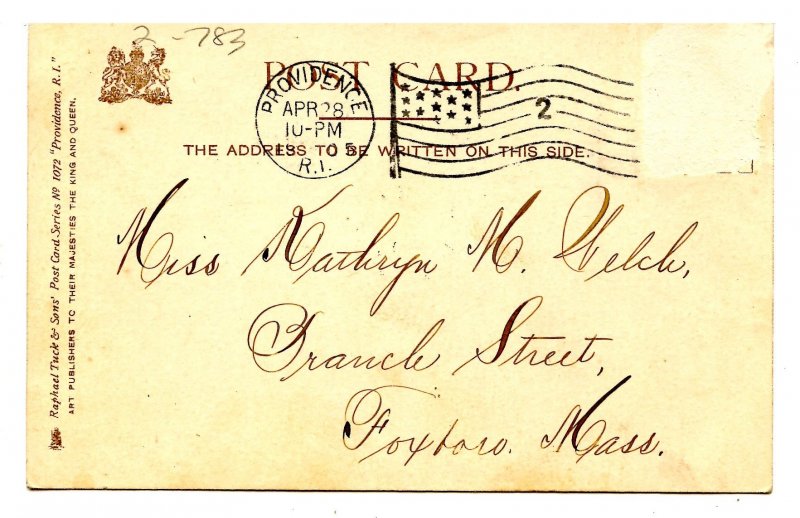 2-783
POST CARD.
PROVIDENCE
APR 28
10-PM
1905
R.I.
2
THE ADDRESS TO BE WRITTEN ON THIS SIDE.
Raphael Tuck & Sons' Post Card Series No 1072 "Providence, R.I."
ART PUBLISHERS TO THEIR MAJESTIES THE KING AND QUEEN.
Miss Kathryn M. Welch,
Street,
Foxboro. Mass.